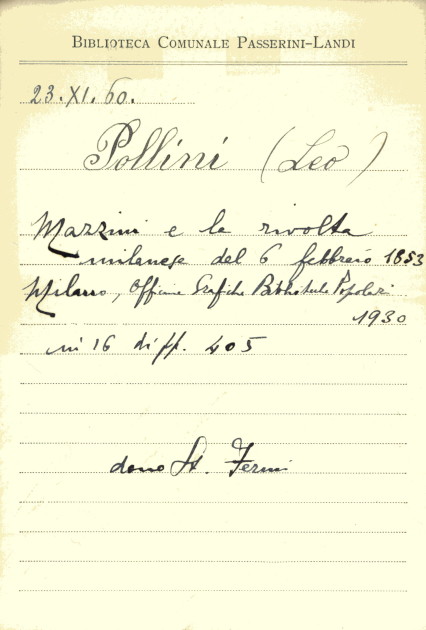 BIBLIOTECA COMUNALE PASSERINI-LANDI
23.XI.60.
Pollini (Leo)
Mazzini e la rivolta
milanese del 6 febbraio 1853
Milano, Officine Grafiche Biblioteche Popolari
1930
in 16 di pp. 405
dono St. Fermi